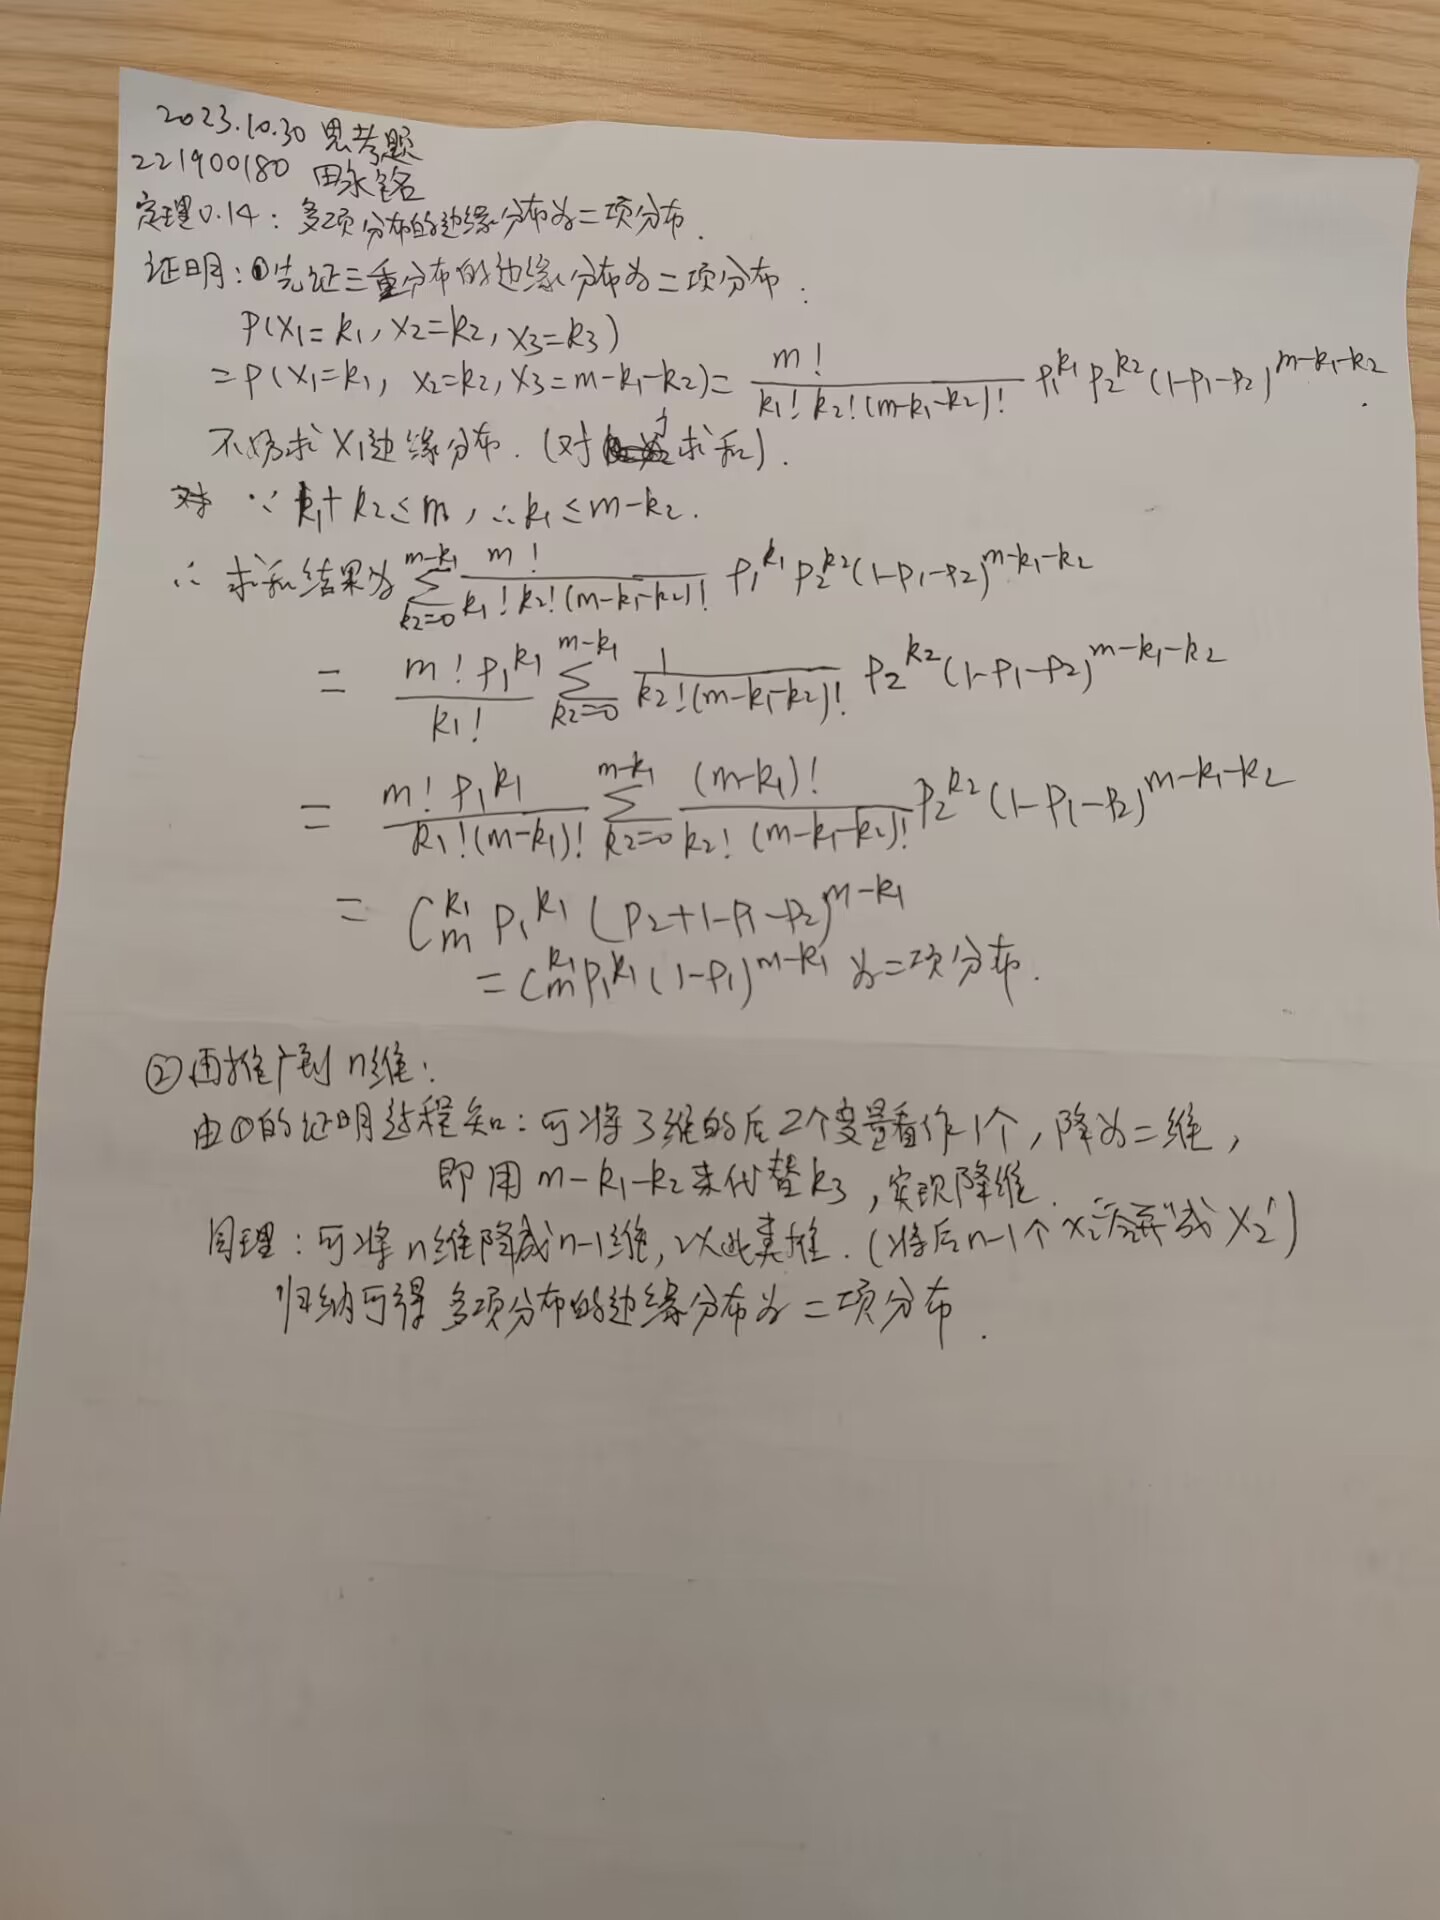 2023.10.30 思考题
221900180 田永铭
定理0.14: 多项分布的边缘分布为二项分布.
证明: ①先证三重分布的边缘分布为二项分布:
P(X1=k1, X2=k2, X3=k3)
=P(X1=k1, X2=k2, X3=m-k1-k2)= m!/(k1! k2! (m-k1-k2)!) P1^k1 P2^k2 (1-P1-P2)^(m-k1-k2).
不妨求X1边缘分布. (对 求和).
∵ k1+k2≤m, ∴k1≤m-k2.
∴ 求和结果为 ∑_{k2=0}^{m-k1} m!/(k1! k2! (m-k1-k2)!) P1^k1 P2^k2 (1-P1-P2)^(m-k1-k2)
= m! P1^k1/k1! ∑_{k2=0}^{m-k1} 1/(k2! (m-k1-k2)!) P2^k2 (1-P1-P2)^(m-k1-k2)
= m! P1^k1/(k1! (m-k1)!) ∑_{k2=0}^{m-k1} (m-k1)!/(k2! (m-k1-k2)!) P2^k2 (1-P1-P2)^(m-k1-k2)
= C_m^k1 P1^k1 (P2+1-P1-P2)^(m-k1)
= C_m^k1 P1^k1 (1-P1)^(m-k1) 为二项分布.
②再推广到n维:
由①的证明过程知: 可将3维的后2个变量看作1个, 降为二维,
即用m-k1-k2来代替k3, 实现降维.
同理: 可将n维降成n-1维, 以此类推. (将后n-1个Xi"合并"成X2')
归纳可得多项分布的边缘分布为二项分布.